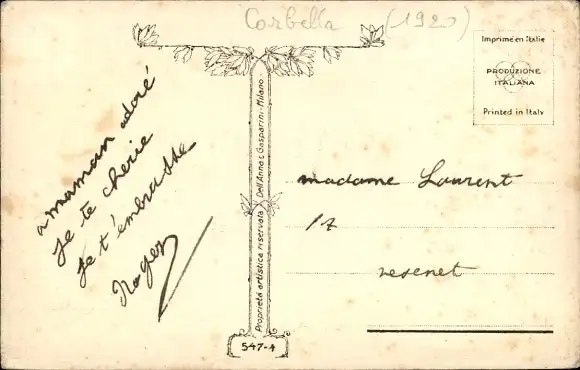 Corbella (1920)
Imprimé en Italie
PRODUZIONE
ITALIANA
Printed in Italy
a maman adoré
je te cherie
je t'embrasse
Roger
Proprietà artistica riservata Dell'Anna e Gasparini - Milano
madame Laurent
17
vesenet
547-4